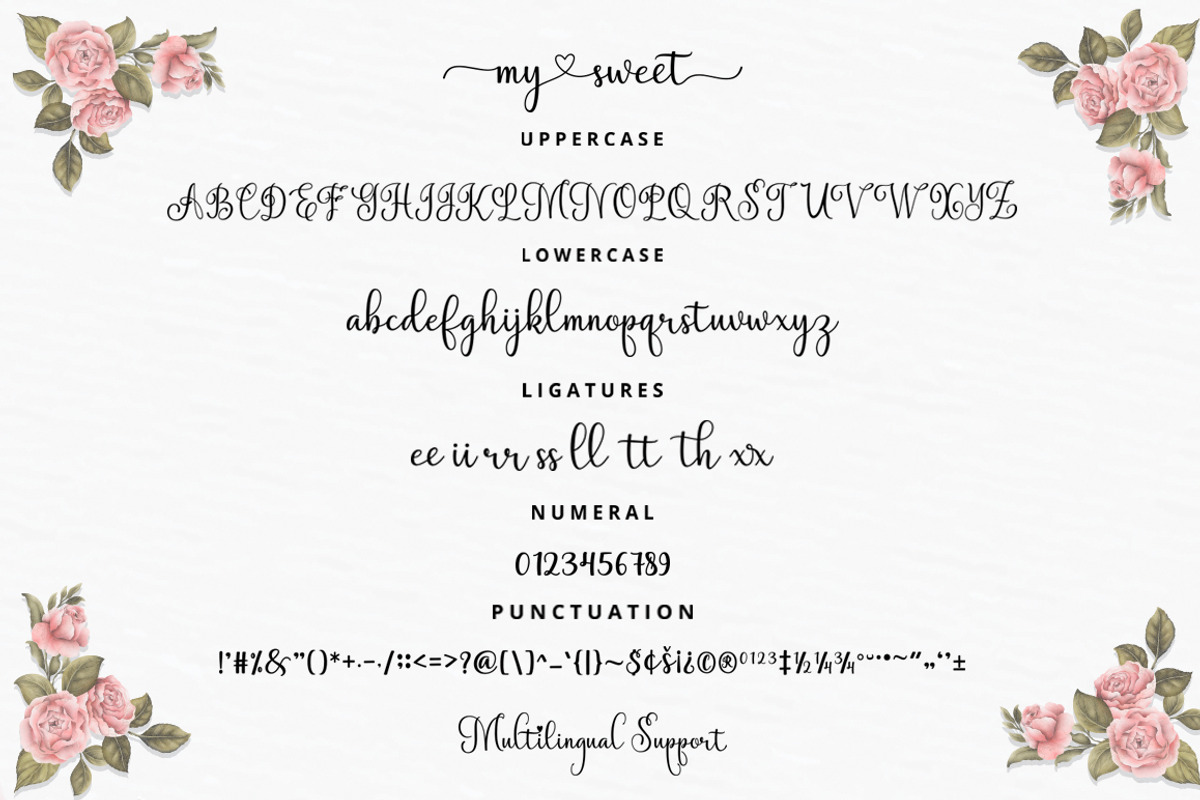 my sweet
UPPERCASE
ABCDEFGHIJKLMNOPQRSTUVWXYZ
LOWERCASE
abcdefghijklmnopqrstuvwxyz
LIGATURES
ee ii rr ss ll tt th xx
NUMERAL
0123456789
PUNCTUATION
!'#%&"()*+,-./:;<=>?@[\]^_`{|}~$¢š¡¿©®⁰¹²³‡½¼¾°˘·•~"„‘’±
Multilingual Support